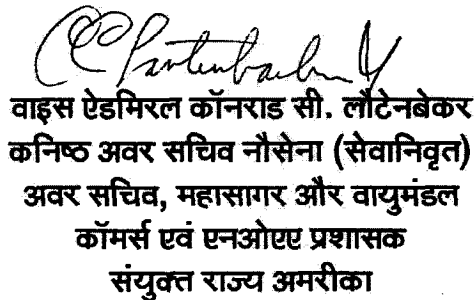 वाइस ऐडमिरल कॉनराड सी. लौटेनबेकर
कनिष्ठ अवर सचिव नौसेना (सेवानिवृत)
अवर सचिव, महासागर और वायुमंडल
कॉमर्स एवं एनओएए प्रशासक
संयुक्त राज्य अमरीका